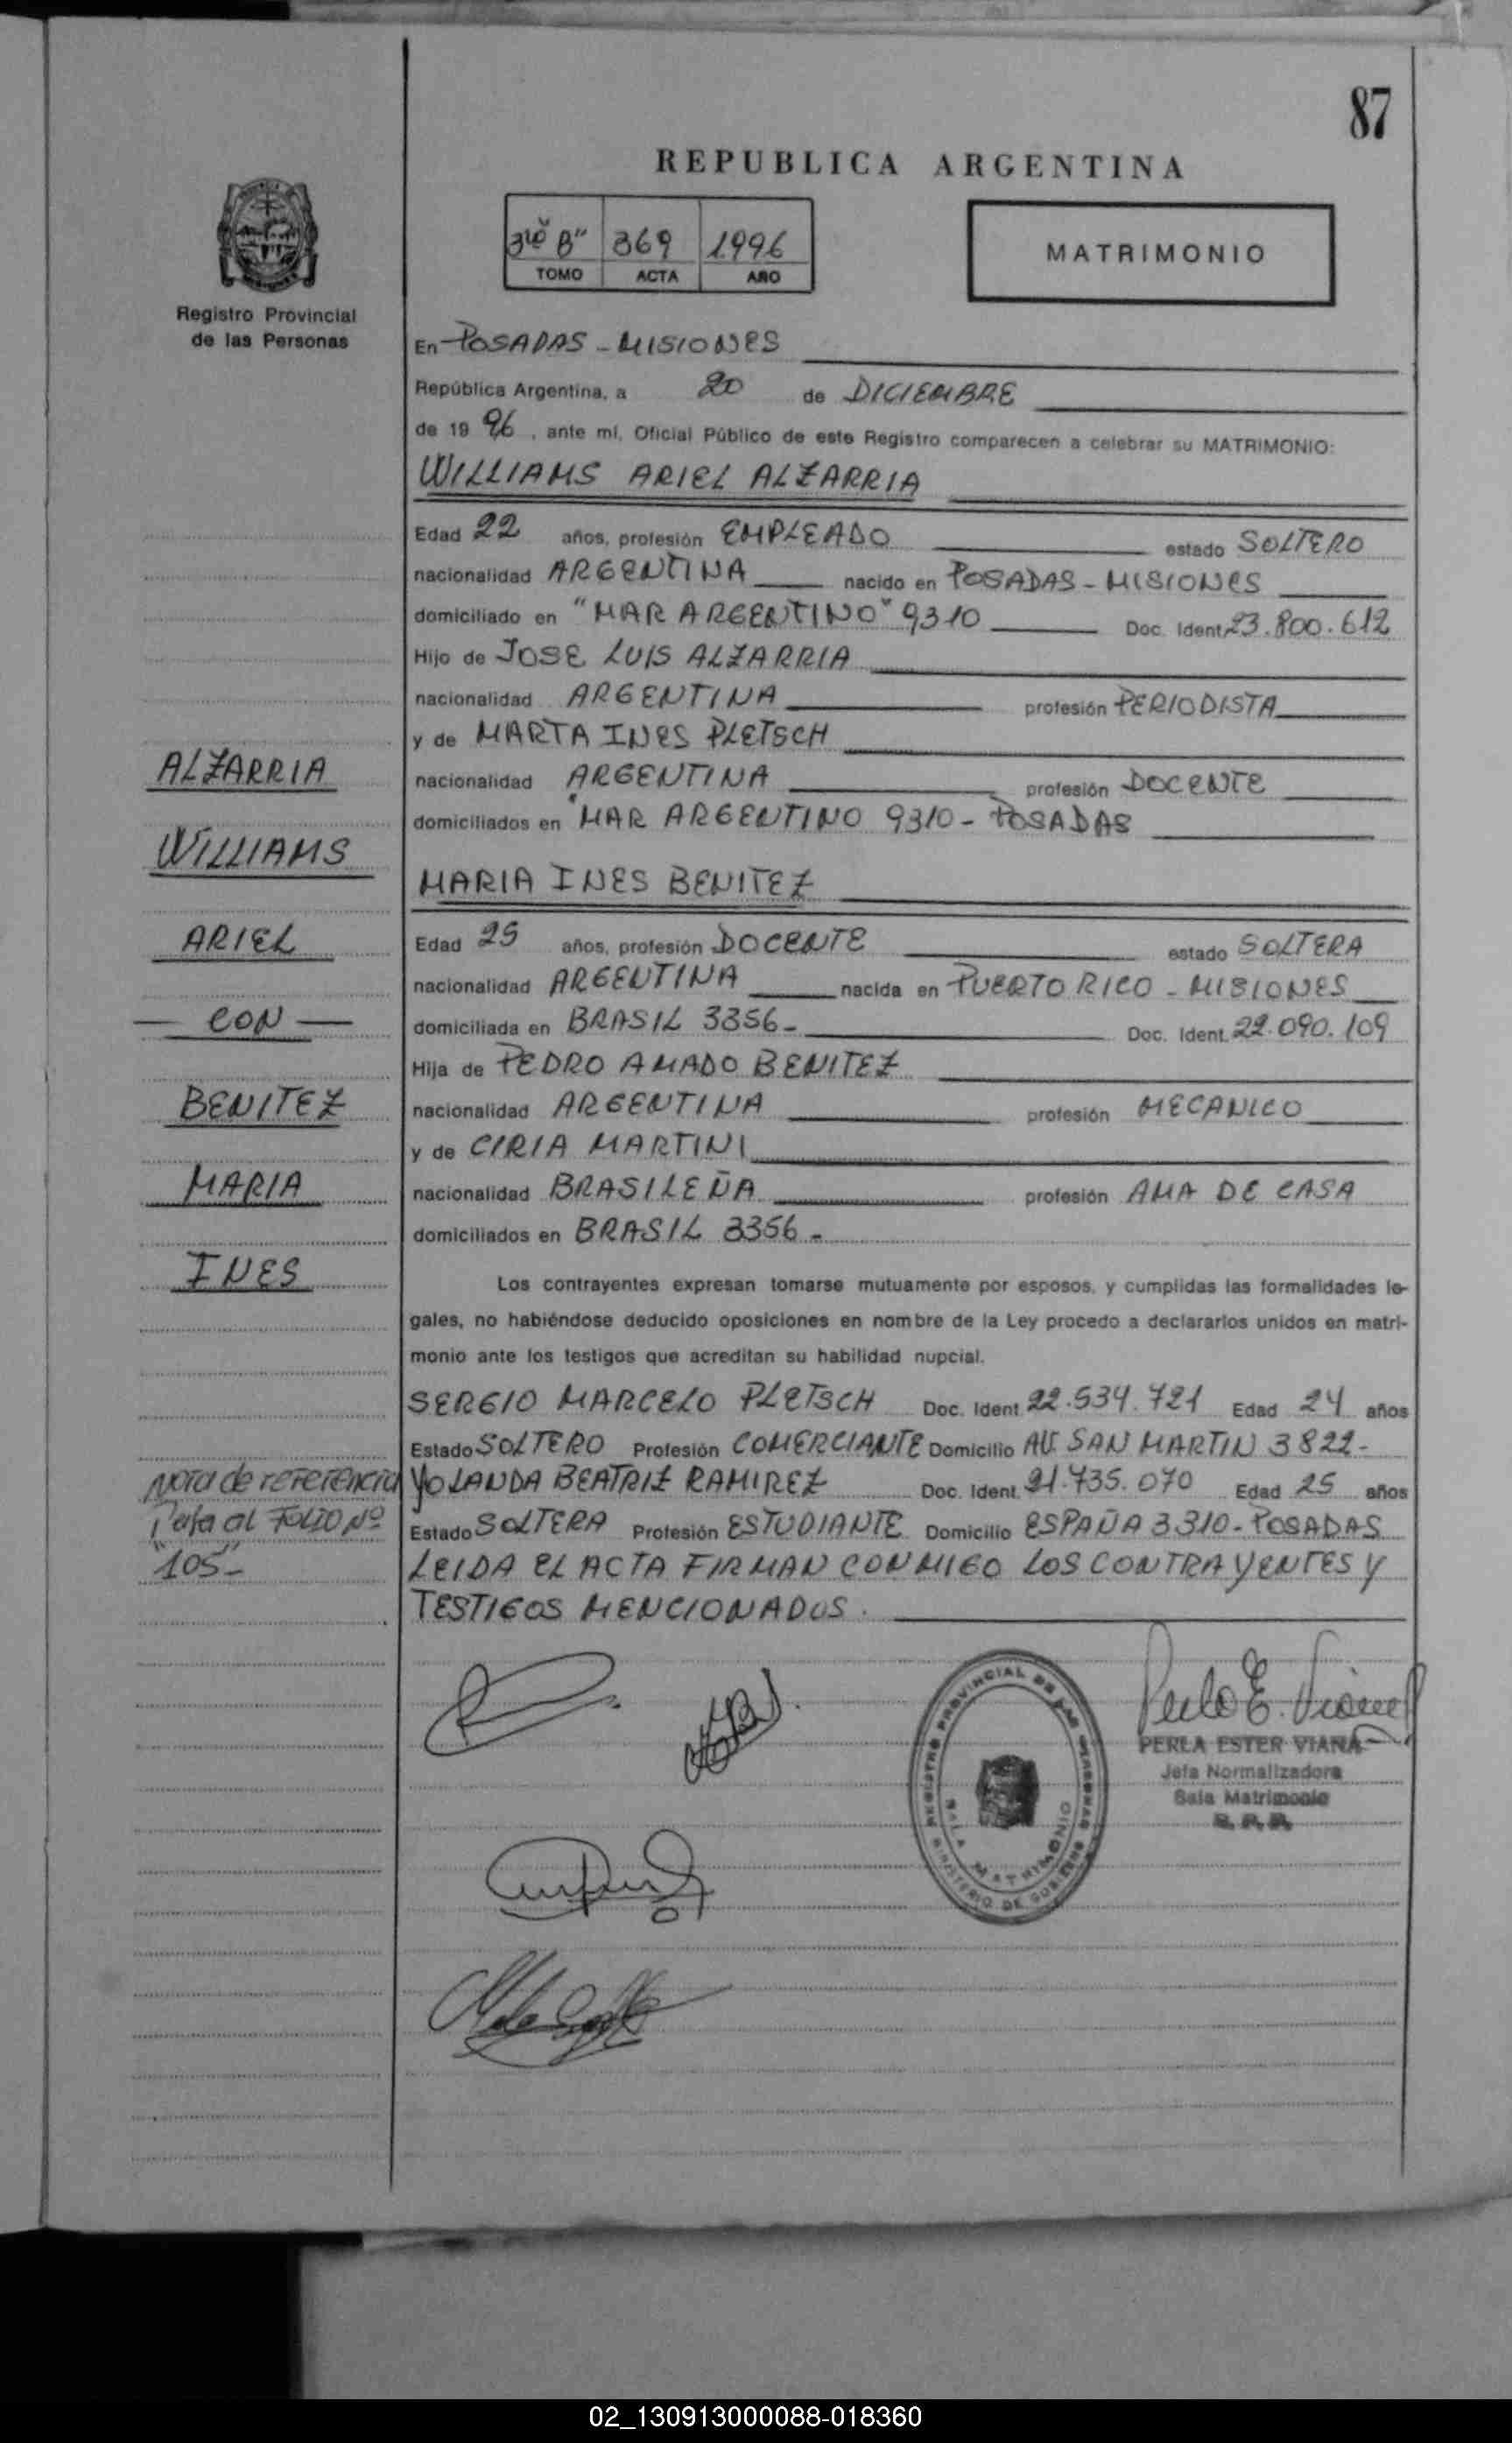 87
REPUBLICA ARGENTINA
3ro B" 369 1996
TOMO ACTA AÑO
MATRIMONIO
Registro Provincial
de las Personas
En POSADAS - MISIONES
República Argentina, a 20 de DICIEMBRE
de 19 96, ante mí, Oficial Público de este Registro comparecen a celebrar su MATRIMONIO:
WILLIAMS ARIEL ALZARRIA
Edad 22 años, profesión EMPLEADO estado SOLTERO
nacionalidad ARGENTINA nacido en POSADAS - MISIONES
domiciliado en "MAR ARGENTINO" 9310 Doc. Ident. 23.800.612
Hijo de JOSE LUIS ALZARRIA
nacionalidad ARGENTINA profesión PERIODISTA
y de MARTA INES PLETSCH
nacionalidad ARGENTINA profesión DOCENTE
domiciliados en "MAR ARGENTINO 9310 - POSADAS
MARIA INES BENITEZ
Edad 25 años, profesión DOCENTE estado SOLTERA
nacionalidad ARGENTINA nacida en PUERTO RICO - MISIONES
domiciliada en BRASIL 3356- Doc. Ident. 22.090.109
Hija de PEDRO AMADO BENITEZ
nacionalidad ARGENTINA profesión MECANICO
y de CIRIA MARTINI
nacionalidad BRASILEÑA profesión AMA DE CASA
domiciliados en BRASIL 3356-
Los contrayentes expresan tomarse mutuamente por esposos, y cumplidas las formalidades le-
gales, no habiéndose deducido oposiciones en nombre de la Ley procedo a declararlos unidos en matri-
monio ante los testigos que acreditan su habilidad nupcial.
SERGIO MARCELO PLETSCH Doc. Ident. 22.534.721 Edad 24 años
Estado SOLTERO Profesión COMERCIANTE Domicilio AV. SAN MARTIN 3822-
YOLANDA BEATRIZ RAMIREZ Doc. Ident. 21.735.070 Edad 25 años
Estado SOLTERA Profesión ESTUDIANTE Domicilio ESPAÑA 3310- POSADAS
LEIDA EL ACTA FIRMAN CONMIGO LOS CONTRAYENTES Y
TESTIGOS MENCIONADOS.
ALZARRIA
WILLIAMS
ARIEL
- CON -
BENITEZ
MARIA
INES
Nota de referencia
Pasa al FOLIO Nº
"105"-
REGISTRO PROVINCIAL DE LAS PERSONAS
SALA MATRIMONIO
MINISTERIO DE GOBIERNO
PERLA ESTER VIANA
Jefa Normalizadora
Sala Matrimonio
R. P. P.
02_130913000088-018360